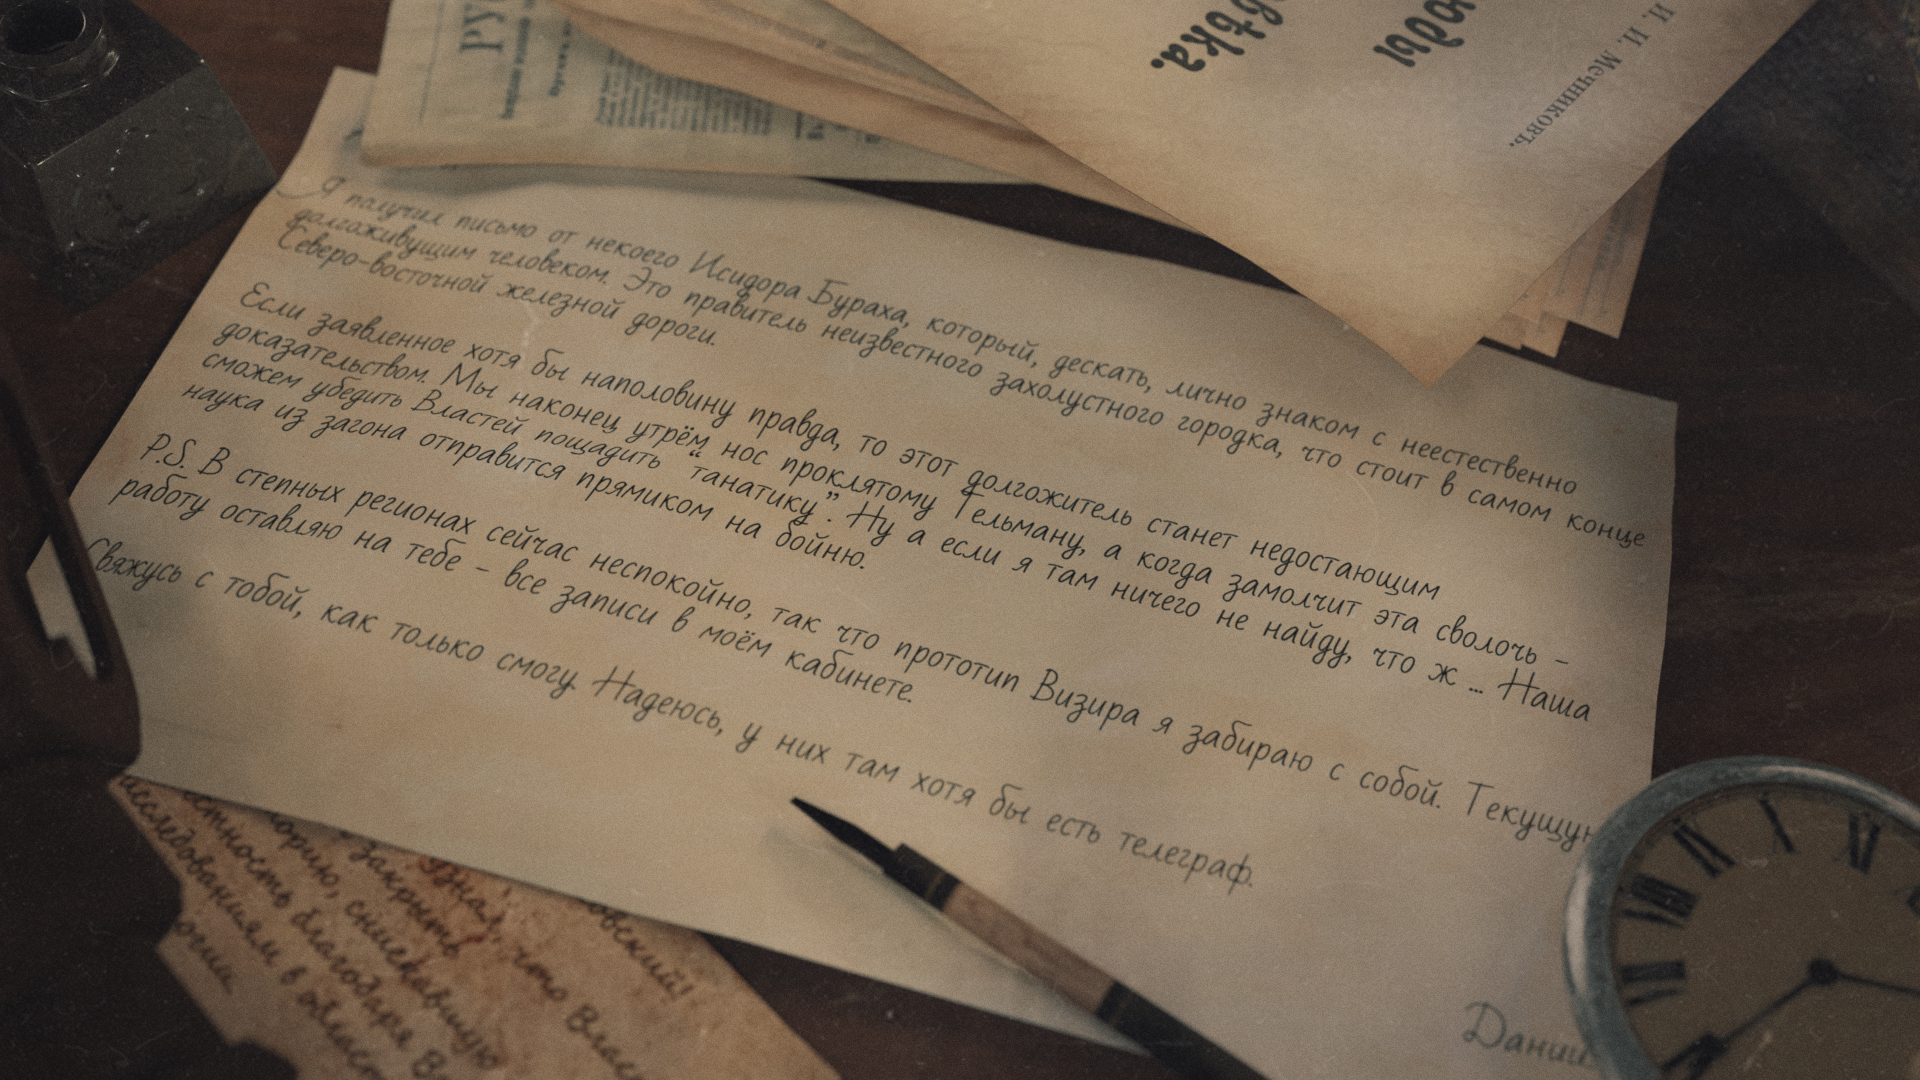 И. И. Мечниковъ.
юды
вѣка.
РУС
Я получил письмо от некоего Исидора Бураха, который, дескать, лично знаком с неестественно
долгоживущим человеком. Это правитель неизвестного захолустного городка, что стоит в самом конце
Северо-восточной железной дороги.
Если заявленное хотя бы наполовину правда, то этот долгожитель станет недостающим
доказательством. Мы наконец утрём нос проклятому Гельману, а когда замолчит эта сволочь -
сможем убедить Властей пощадить “танатику”. Ну а если я там ничего не найду, что ж ... Наша
наука из загона отправится прямиком на бойню.
P.S. В степных регионах сейчас неспокойно, так что прототип Визира я забираю с собой. Текущую
работу оставляю на тебе - все записи в моём кабинете.
Свяжусь с тобой, как только смогу. Надеюсь, у них там хотя бы есть телеграф.
Дании
овский!
узнал, что Влас
закрыть
орию, снискавшую
стность благодаря В
исследованиям в област